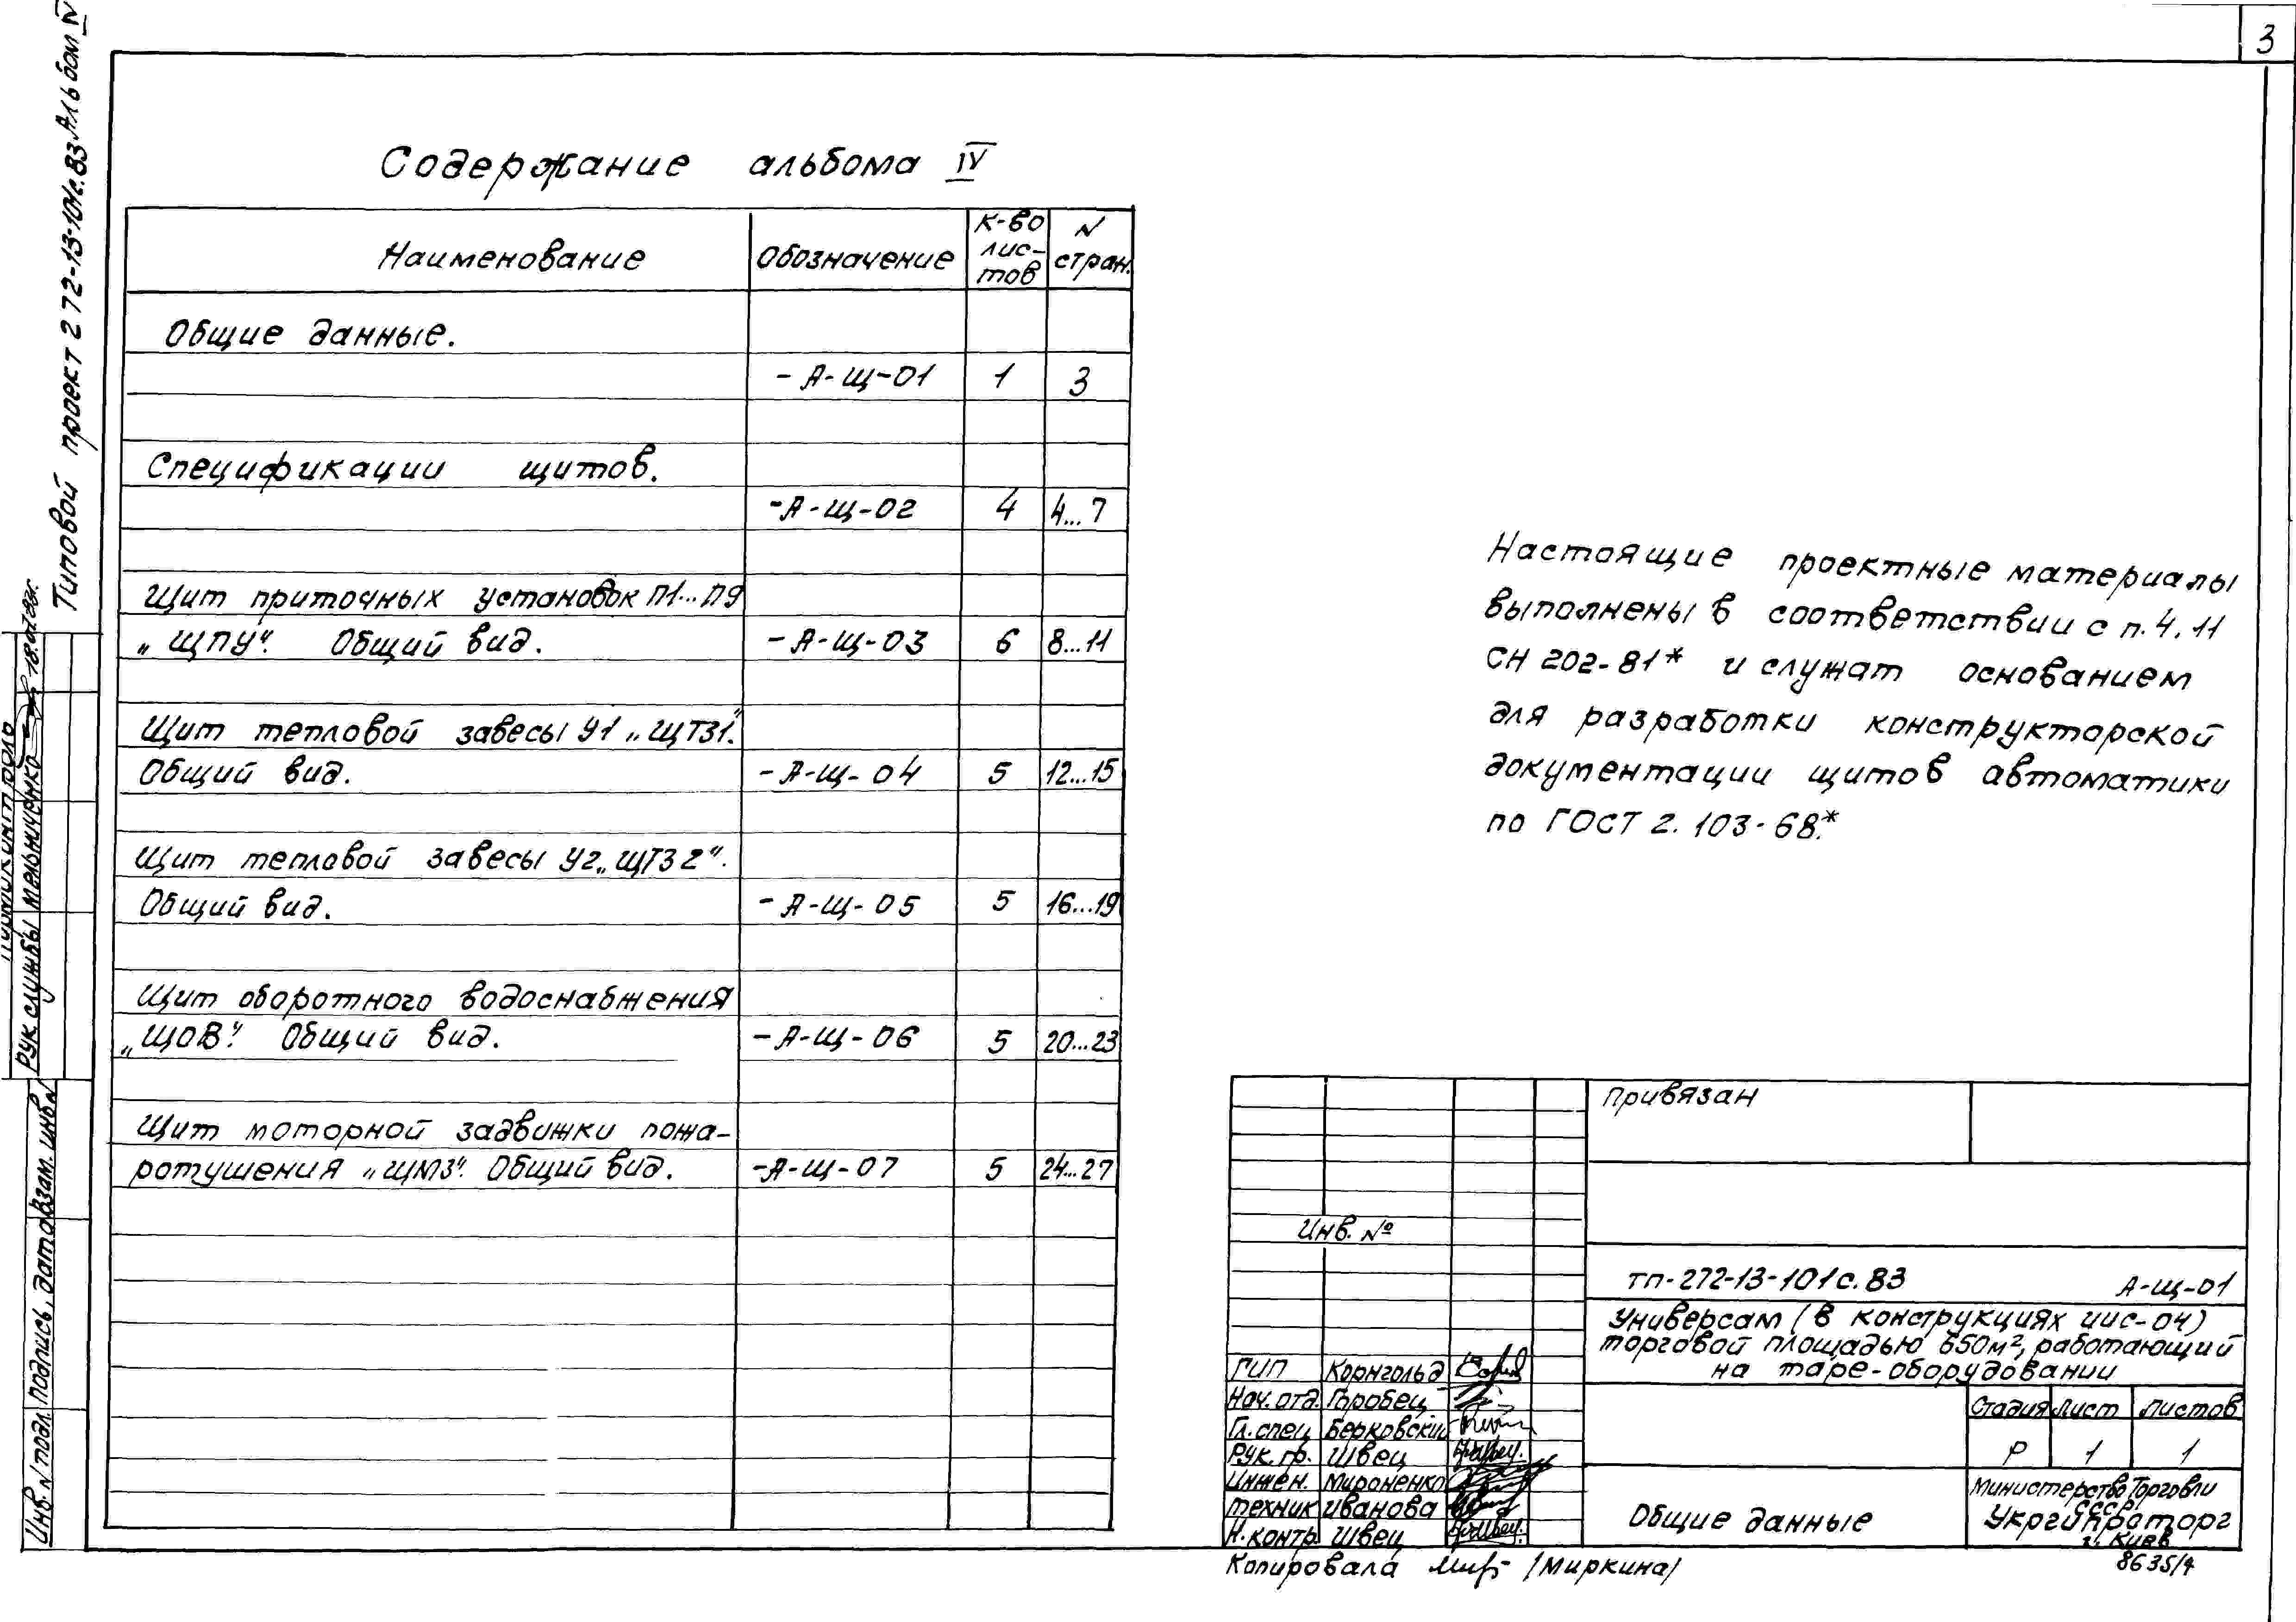 3
Типовой проект 272-13-101с.83 Альбом IV
Содержание альбома IV
Наименование Обозначение К-во листов N стран.
Общие данные.
-А-Щ-01 1 3
Спецификации щитов.
-А-Щ-02 4 4...7
Щит приточных установок П1...П9
„ЩПУ". Общий вид. -А-Щ-03 6 8...11
Щит тепловой завесы У1 „ЩТЗ1".
Общий вид. -А-Щ-04 5 12...15
Щит тепловой завесы У2 „ЩТЗ2".
Общий вид. -А-Щ-05 5 16...19
Щит оборотного водоснабжения
„ЩОВ". Общий вид. -А-Щ-06 5 20...23
Щит моторной задвижки пожа-
ротушения „ЩМЗ". Общий вид. -А-Щ-07 5 24...27
Настоящие проектные материалы
выполнены в соответствии с п.4.11
СН 202-81* и служат основанием
для разработки конструкторской
документации щитов автоматики
по ГОСТ 2.103-68.*
Рук службы Мельниченко
Инв.N подл. Подпись, дата Взам. инв N
Привязан
Инв. №
ТП-272-13-101с.83 А-Щ-01
Универсам (в конструкциях ИИС-04)
торговой площадью 650м², работающий
на таре-оборудовании
ГИП Корнгольд
Нач.отд. Горобец
Гл.спец Берковский
Рук.гр. Швец
Инжен. Мироненко
Техник Иванова
Н.контр. Швец
Стадия Лист Листов
Р 1 1
Общие данные
Министерство Торговли
СССР
Укргипроторг
г. Киев
Копировала /Миркина/
8635/4